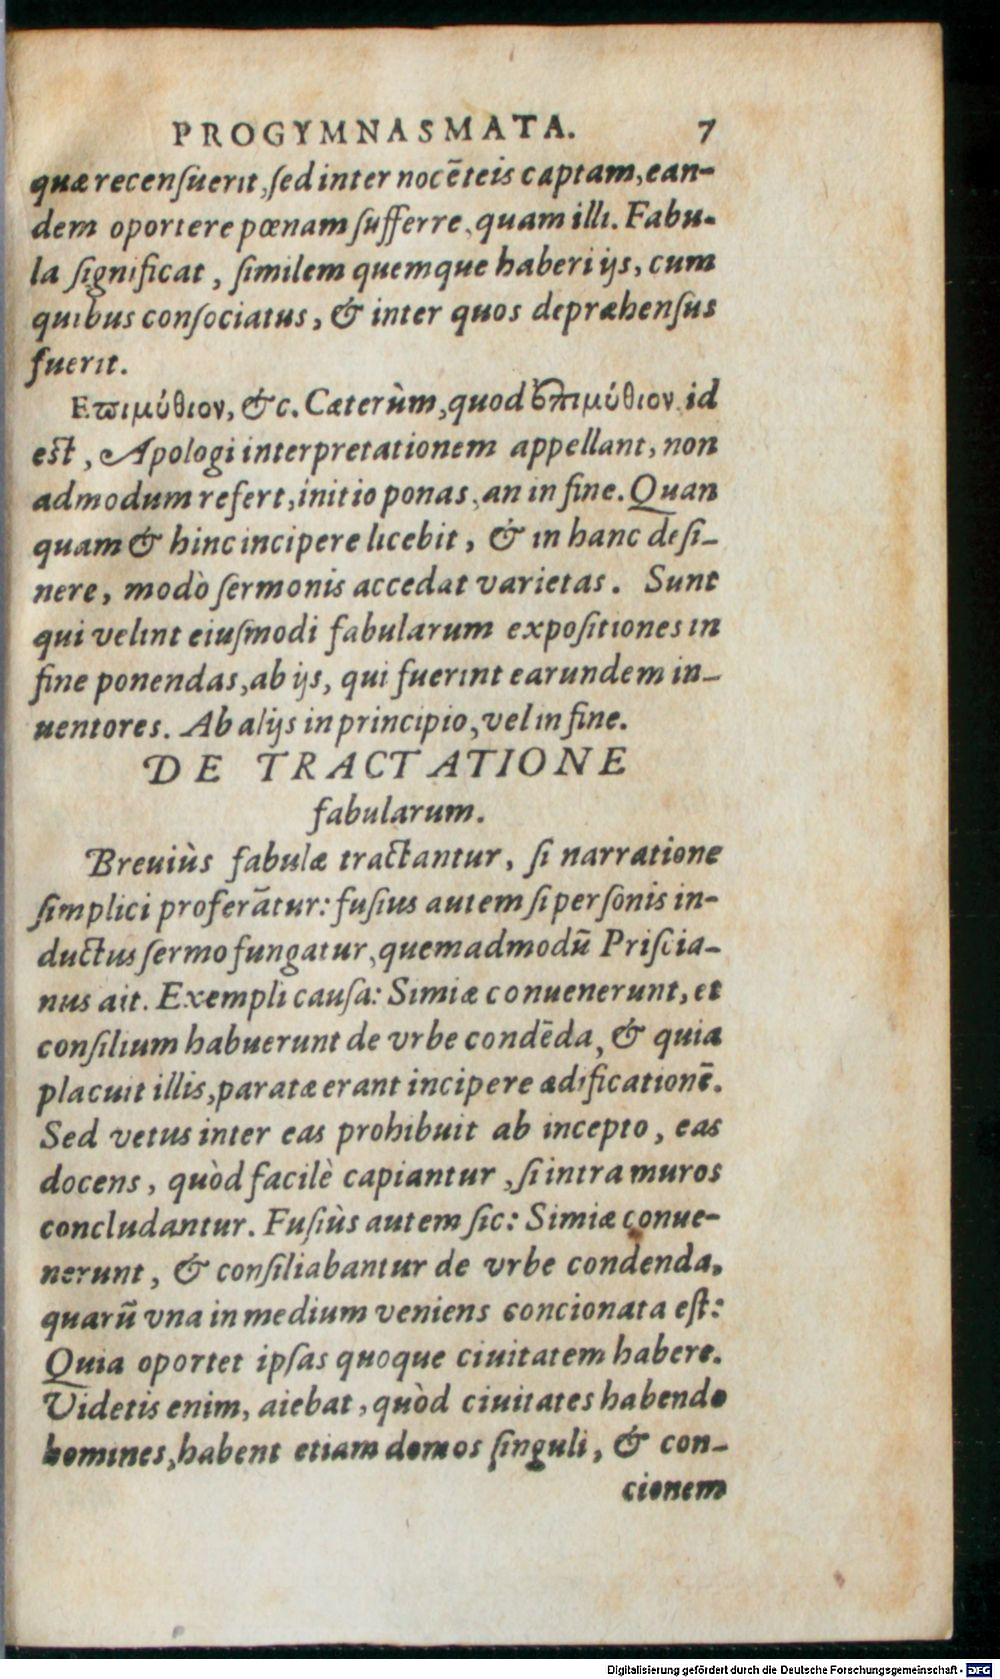 PROGYMNASMATA. 7
quæ recenſuerit, ſed inter nocẽteis captam, ean-
dem oportere pœnam ſufferre, quam illi. Fabu-
la ſignificat, ſimilem quemque haberi ijs, cum
quibus conſociatus, & inter quos depræhenſus
fuerit.
Επιμύθιον, &c. Cæterùm, quod ἐπιμύθιον id
eſt, Apologi interpretationem appellant, non
admodum refert, initio ponas, an in fine. Quan
quam & hinc incipere licebit, & in hanc deſi-
nere, modò ſermonis accedat varietas. Sunt
qui velint eiuſmodi fabularum expoſitiones in
fine ponendas, ab ijs, qui fuerint earundem in-
uentores. Ab alijs in principio, vel in fine.
DE TRACTATIONE
fabularum.
Breuiùs fabulæ tractantur, ſi narratione
ſimplici proferãtur: fuſius autem ſi perſonis in-
ductus ſermo fungatur, quemadmodũ Priſcia-
nus ait. Exempli cauſa: Simiæ conuenerunt, et
conſilium habuerunt de vrbe condẽda, & quia
placuit illis, paratæ erant incipere ædificationẽ.
Sed vetus inter eas prohibuit ab incepto, eas
docens, quòd facilè capiantur, ſi intra muros
concludantur. Fuſiùs autem ſic: Simiæ conue-
nerunt, & conſiliabantur de vrbe condenda,
quarũ vna in medium veniens concionata eſt:
Quia oportet ipſas quoque ciuitatem habere.
Videtis enim, aiebat, quòd ciuitates habendo
homines, habent etiam domos ſinguli, & con-
cionem
Digitalisierung gefördert durch die Deutsche Forschungsgemeinschaft - DFG